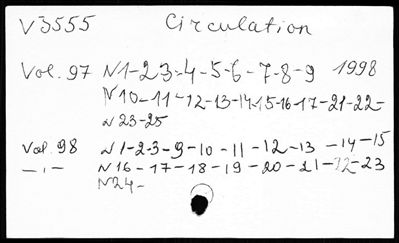 V3555 Circulation
Vol. 97 N1-2-3-4-5-6-7-8-9 1998
N10-11-12-13-14-15-16-17-21-22-
N23-25
Vol. 98 N1-2-3-9-10-11-12-13-14-15
—"— N16-17-18-19-20-21-22-23
N24-